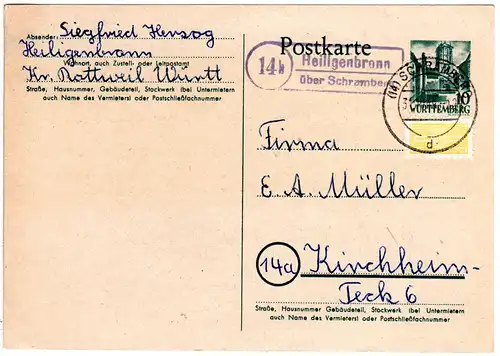 Absender: Siegfried Herzog
Heiligenbronn
Wohnort, auch Zustell- oder Leitpostamt
Kr. Rottweil Württ
Straße, Hausnummer, Gebäudeteil, Stockwerk (bei Untermietern
auch Name des Vermieters) oder Postschließfachnummer
Postkarte
14b
Heiligenbronn
über Schramberg
10
WÜRTTEMBERG
d
Firma
E. A. Müller
14a
Kirchheim-
Teck 6
Straße, Hausnummer, Gebäudeteil, Stockwerk (bei Untermietern
auch Name des Vermieters) oder Postschließfachnummer